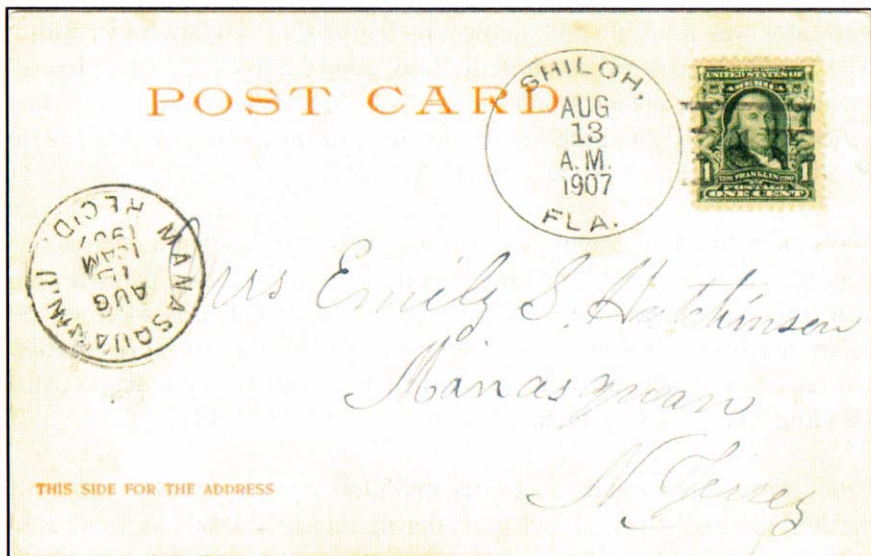 POST CARD
SHILOH,
AUG
13
A.M.
1907
FLA.
UNITED STATES OF
AMERICA
1 FRANKLIN 1
POSTAGE
ONE CENT
MANASQUAN, N.J.
AUG
10AM
1907
REC'D.
Mrs Emily S. Hutchinson
Manasquan
N. Jersey
THIS SIDE FOR THE ADDRESS